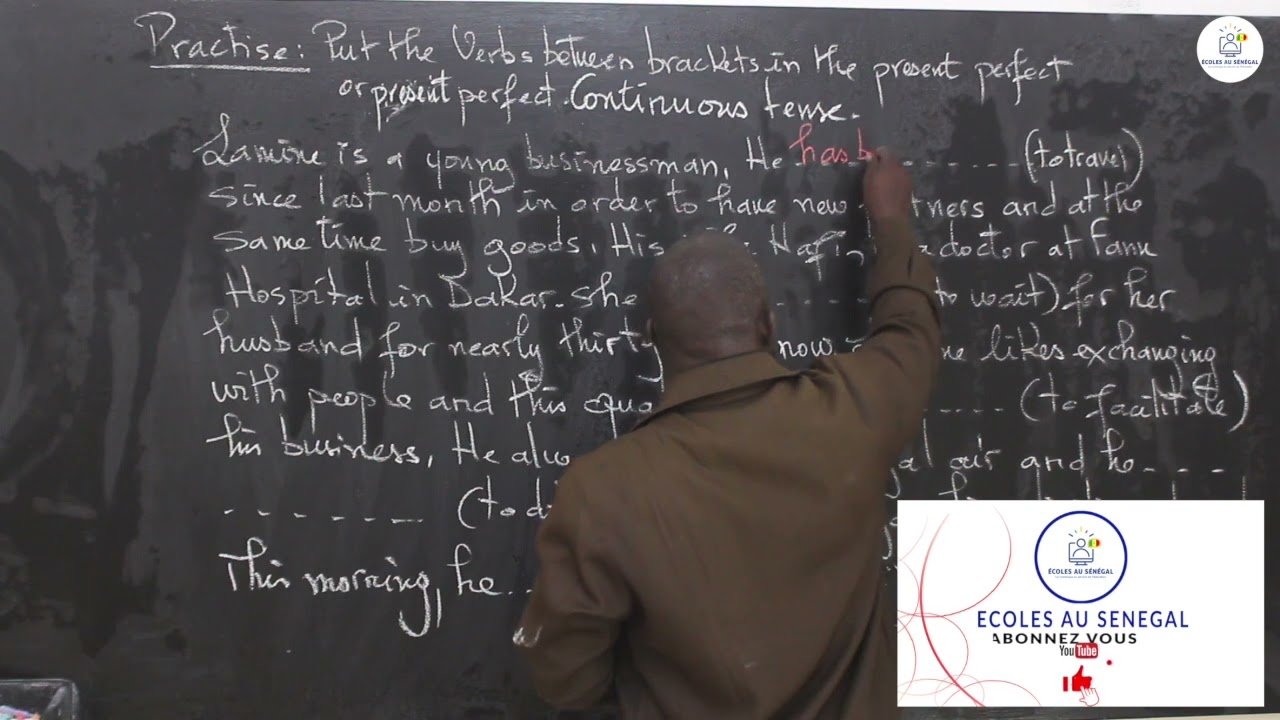 Practise: Put the Verbs between brackets in the present perfect
or present perfect Continuous tense.
Lamine is a young businessman. He has b ------ (to travel)
since last month in order to have new and at the
same time buy goods. His doctor at Fann
Hospital in Dakar. She to wait) for her
husband for nearly thirty now likes exchanging
with people and this (to facilitate)
his business. He also air and he ---
------- (to
This morning, he ---
ÉCOLES AU SÉNÉGAL
ÉCOLES AU SÉNÉGAL
ECOLES AU SENEGAL
ABONNEZ VOUS
YouTube